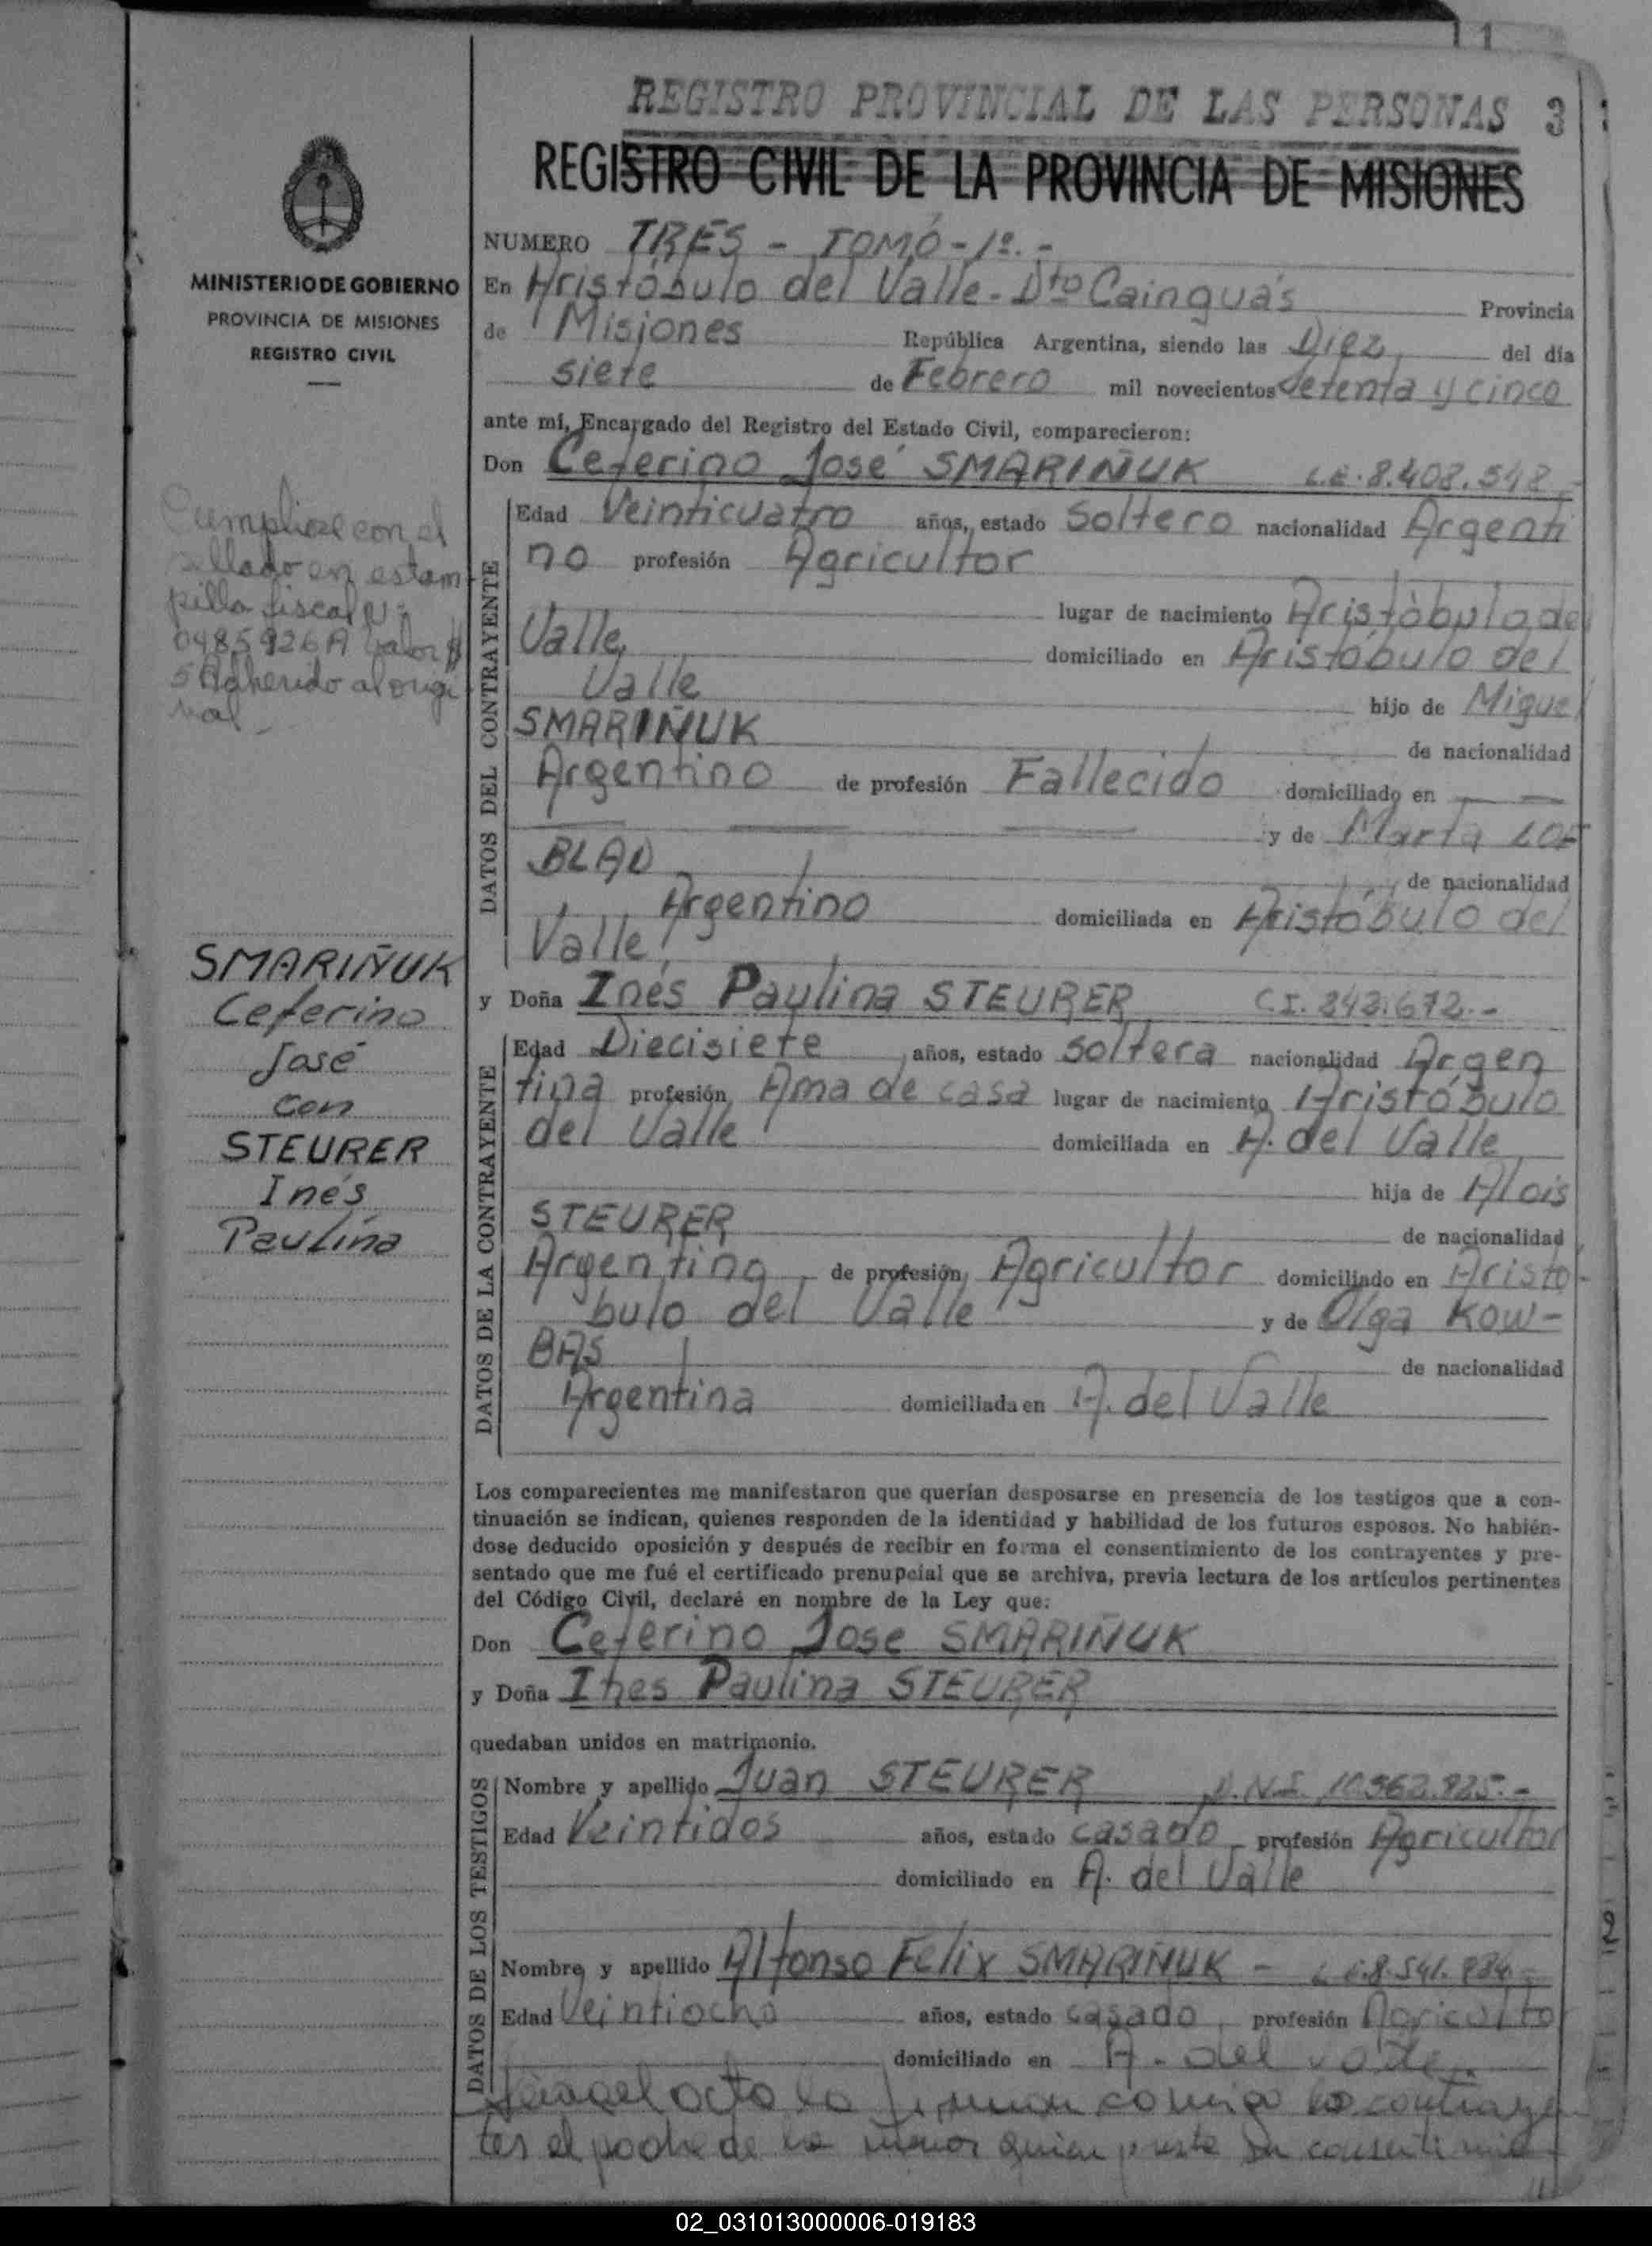 11
REGISTRO PROVINCIAL DE LAS PERSONAS 3
REGISTRO CIVIL DE LA PROVINCIA DE MISIONES
MINISTERIO DE GOBIERNO
PROVINCIA DE MISIONES
REGISTRO CIVIL
NUMERO TRES - TOMO - 1º. -
En Aristóbulo del Valle - Dto Cainguás Provincia
de Misiones República Argentina, siendo las Diez, del día
siete de Febrero mil novecientos setenta y cinco
ante mí, Encargado del Registro del Estado Civil, comparecieron:
Don Ceferino José SMARIÑUK L.E. 8.408.548.-
Edad Veinticuatro años, estado Soltero nacionalidad Argenti
no profesión Agricultor
lugar de nacimiento Aristóbulo del
Valle, domiciliado en Aristóbulo del
Valle hijo de Miguel
SMARIÑUK de nacionalidad
Argentino de profesión Fallecido domiciliado en — —
y de Marta LOS
BLAD de nacionalidad
Argentino domiciliada en Aristóbulo del
Valle,
y Doña Inés Paulina STEURER C.I. 242.672.-
Edad Diecisiete años, estado Soltera nacionalidad Argen
tina profesión Ama de casa lugar de nacimiento Aristóbulo
del Valle domiciliada en A. del Valle
hija de Alois
STEURER de nacionalidad
Argentina de profesión Agricultor domiciliado en Aristo-
bulo del Valle y de Olga KOW-
BAS de nacionalidad
Argentina domiciliada en A. del Valle
Cumplióse con el
sellado en estam
pilla fiscal Nº
0485926A valor $
5 Adherido al origi
nal -
SMARIÑUK
Ceferino
José
con
STEURER
Inés
Paulina
DATOS DEL CONTRAYENTE
DATOS DE LA CONTRAYENTE
Los comparecientes me manifestaron que querían desposarse en presencia de los testigos que a con-
tinuación se indican, quienes responden de la identidad y habilidad de los futuros esposos. No habién-
dose deducido oposición y después de recibir en forma el consentimiento de los contrayentes y pre-
sentado que me fué el certificado prenupcial que se archiva, previa lectura de los artículos pertinentes
del Código Civil, declaré en nombre de la Ley que:
Don Ceferino Jose SMARIÑUK
y Doña Ines Paulina STEURER
quedaban unidos en matrimonio.
DATOS DE LOS TESTIGOS
Nombre y apellido Juan STEURER D.N.I. 10.562.925.-
Edad Veintidos años, estado casado profesión Agricultor
domiciliado en A. del Valle
Nombre y apellido Alfonso Felix SMARIÑUK - L.E. 8.541.
Edad Veintiocho años, estado casado, profesión Agriculto
domiciliado en A. del Valle.
acto la firman conmigo los contrayen
tes el padre de la menor quien presta su consentimie
02_031013000006-019183